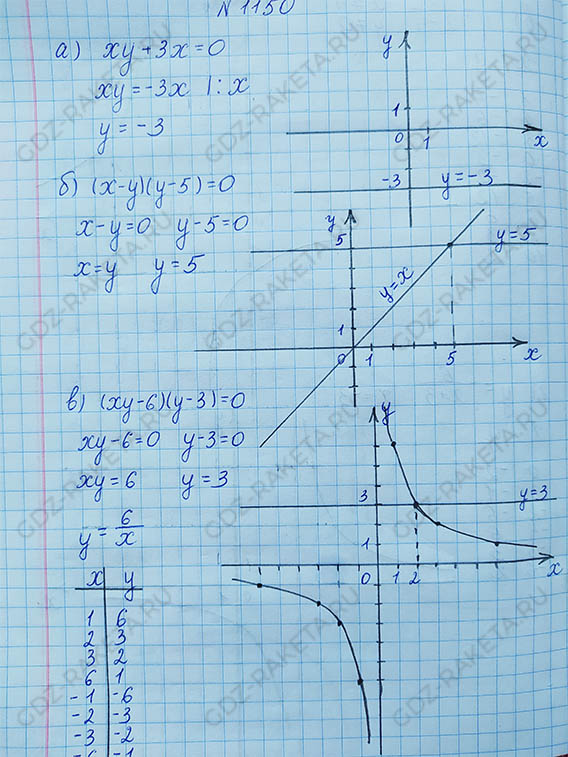 N 1150
а) xy+3x=0
xy=-3x |: x
y=-3
y
1
0 1 x
-3 y=-3
б) (x-y)(y-5)=0
x-y=0 y-5=0
x=y y=5
y
5 y=5
y=x
1
0 1 5 x
в) (xy-6)(y-3)=0
xy-6=0 y-3=0
xy=6 y=3
y=6/x
y
3 y=3
1
0 1 2 x
x y
1 6
2 3
3 2
6 1
-1 -6
-2 -3
-3 -2
-6 -1
GDZ-RAKETA.RU